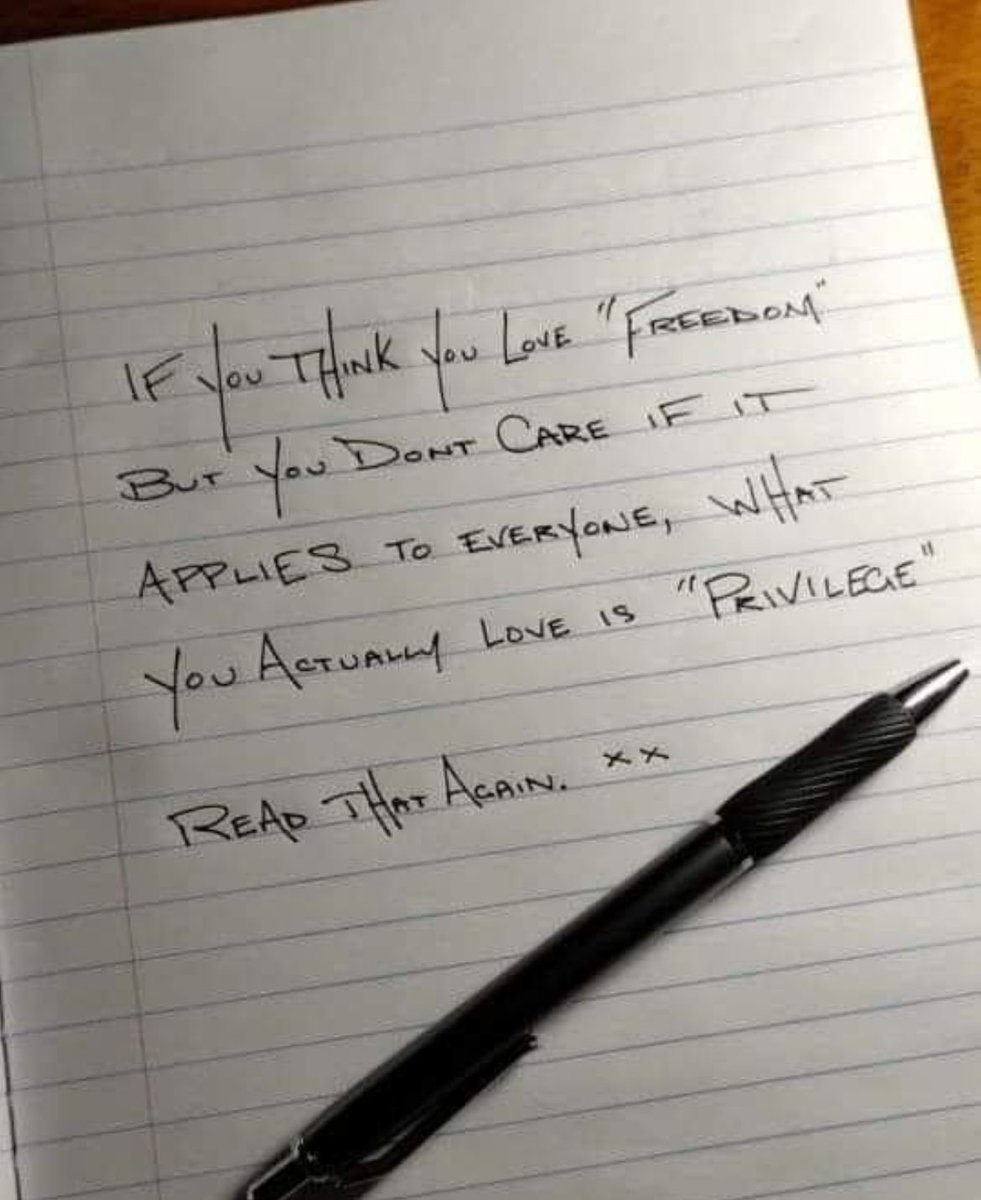 IF YOU THINK YOU LOVE "FREEDOM"
BUT YOU DONT CARE IF IT
APPLIES TO EVERYONE, WHAT
YOU ACTUALLY LOVE IS "PRIVILEGE"
READ THAT AGAIN. xx